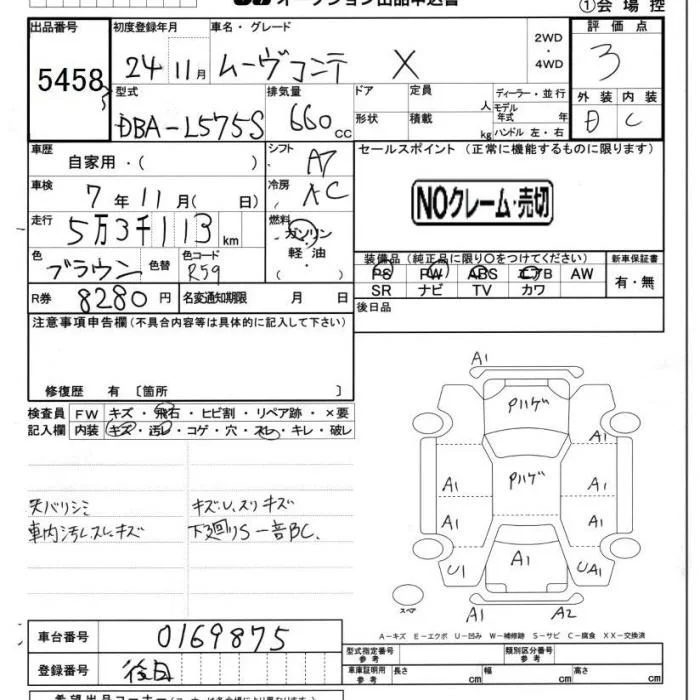 オークション出品申込書
①会場控
出品番号 5458
初度登録年月 24 11月
車名・グレード ムーヴコンテ X
2WD・4WD
評価点 3
型式 DBA-L575S
排気量 660cc
ドア 形状
定員 人
積載 kg
ディーラー・並行
モデル年式 年
ハンドル 左・右
外装 内装
D C
車歴 自家用・( )
シフト A7
セールスポイント (正常に機能するものに限ります)
車検 7年11月( 日)
冷房 AC
NOクレーム・売切
走行 5万3千113km
燃料 ガソリン・軽油・( )
色 ブラウン 色替 色コード R59
装備品 (純正品に限り○をつけてください)
新車保証書
PS PW ABS エアB AW
有・無
SR ナビ TV カワ
R券 8280円
名変通知期限 月 日
後日品
注意事項申告欄(不具合内容等は具体的に記入して下さい)
修復歴 有 〔箇所 〕
検査員記入欄
FW キズ・飛石・ヒビ割・リペア跡・×要
内装 キズ・汚レ・コゲ・穴・スレ・キレ・破レ
天バリシミ
キズ.U.スリキズ
車内汚レスレキズ
下廻りS一部BC.
A1
Pハゲ
A1
A1 Pハゲ A1
A1 A1
U1 A1 UA1
スペア
A1 A2
A-キズ E-エクボ U-凹み W-補修跡 S-サビ C-腐食 XX-交換済
車台番号 0169875
型式指定番号 参考
類別区分番号 参考
登録番号 後日
車庫証明用 参考
長さ cm 幅 cm 高さ cm
希望出品コーナー